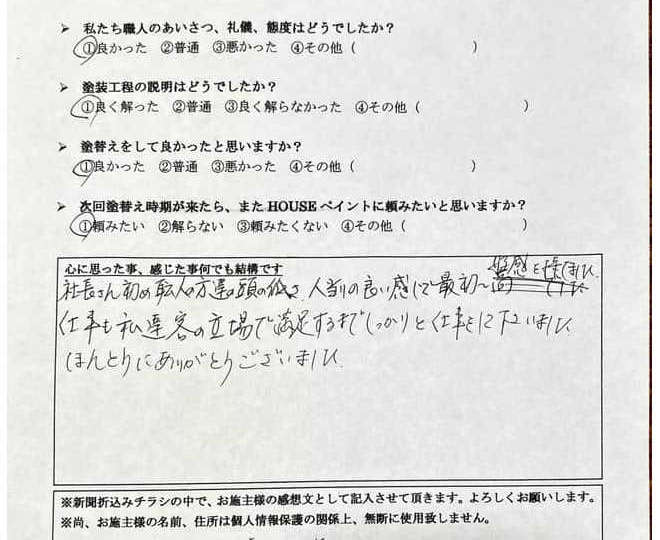 ➢ 私たち職人のあいさつ、礼儀、態度はどうでしたか？
①良かった ②普通 ③悪かった ④その他（ ）
➢ 塗装工程の説明はどうでしたか？
①良く解った ②普通 ③良く解らなかった ④その他（ ）
➢ 塗替えをして良かったと思いますか？
①良かった ②普通 ③悪かった ④その他（ ）
➢ 次回塗替え時期が来たら、また HOUSE ペイントに頼みたいと思いますか？
①頼みたい ②解らない ③頼みたくない ④その他（ ）
心に思った事、感じた事何でも結構です
社長さん初め職人の方達の頭の低さ、人当りの良い感じで最初
仕事も私達客の立場で満足するまでしっかりと仕事をして下さいました
ほんとうにありがとうございました
※新聞折込みチラシの中で、お施主様の感想文として記入させて頂きます。よろしくお願いします。
※尚、お施主様の名前、住所は個人情報保護の関係上、無断に使用致しません。